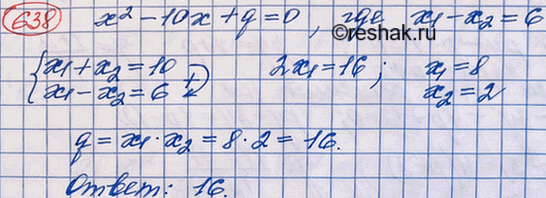 638 x² - 10x + q = 0, где x₁ - x₂ = 6
©reshak.ru
{ x₁ + x₂ = 10
x₁ - x₂ = 6 + 2x₁ = 16; x₁ = 8
x₂ = 2
q = x₁ · x₂ = 8 · 2 = 16.
Ответ: 16.